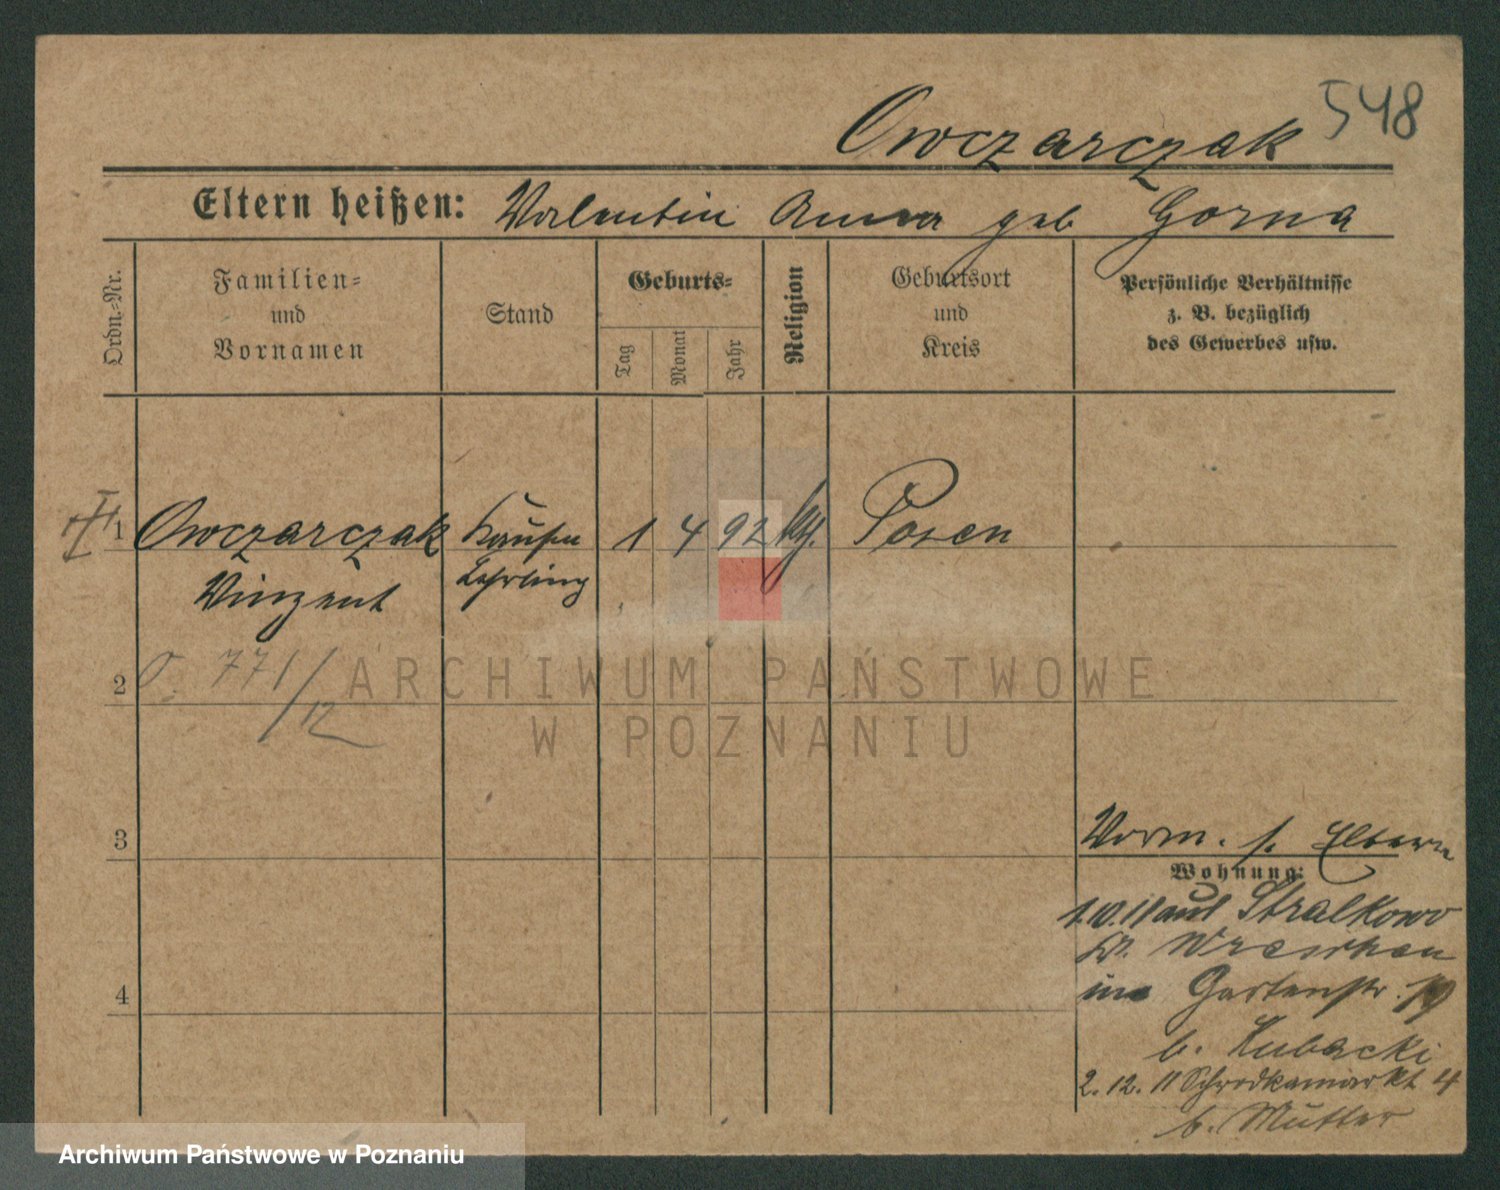 548
Owczarczak
Eltern heißen: Valentin Anna geb Gorna
Ordn.-Nr.
Familien-
und
Vornamen
Stand
Geburts-
Tag
Monat
Jahr
Religion
Geburtsort
und
Kreis
Persönliche Verhältnisse
z. B. bezüglich
des Gewerbes usw.
1 Owczarczak Kaufm 1 4 92 Posen
Vinzent Lehrling
2 771/12
3
4
Vorm. s. Eltern
Wohnung:
1.10.11 aus Stralkowo
Kr. Wreschen
in Gartenstr. 19
b. Kubacki
2.12.11 Schrodkamarkt 4
b. Mutter
ARCHIWUM PAŃSTWOWE
W POZNANIU
Archiwum Państwowe w Poznaniu